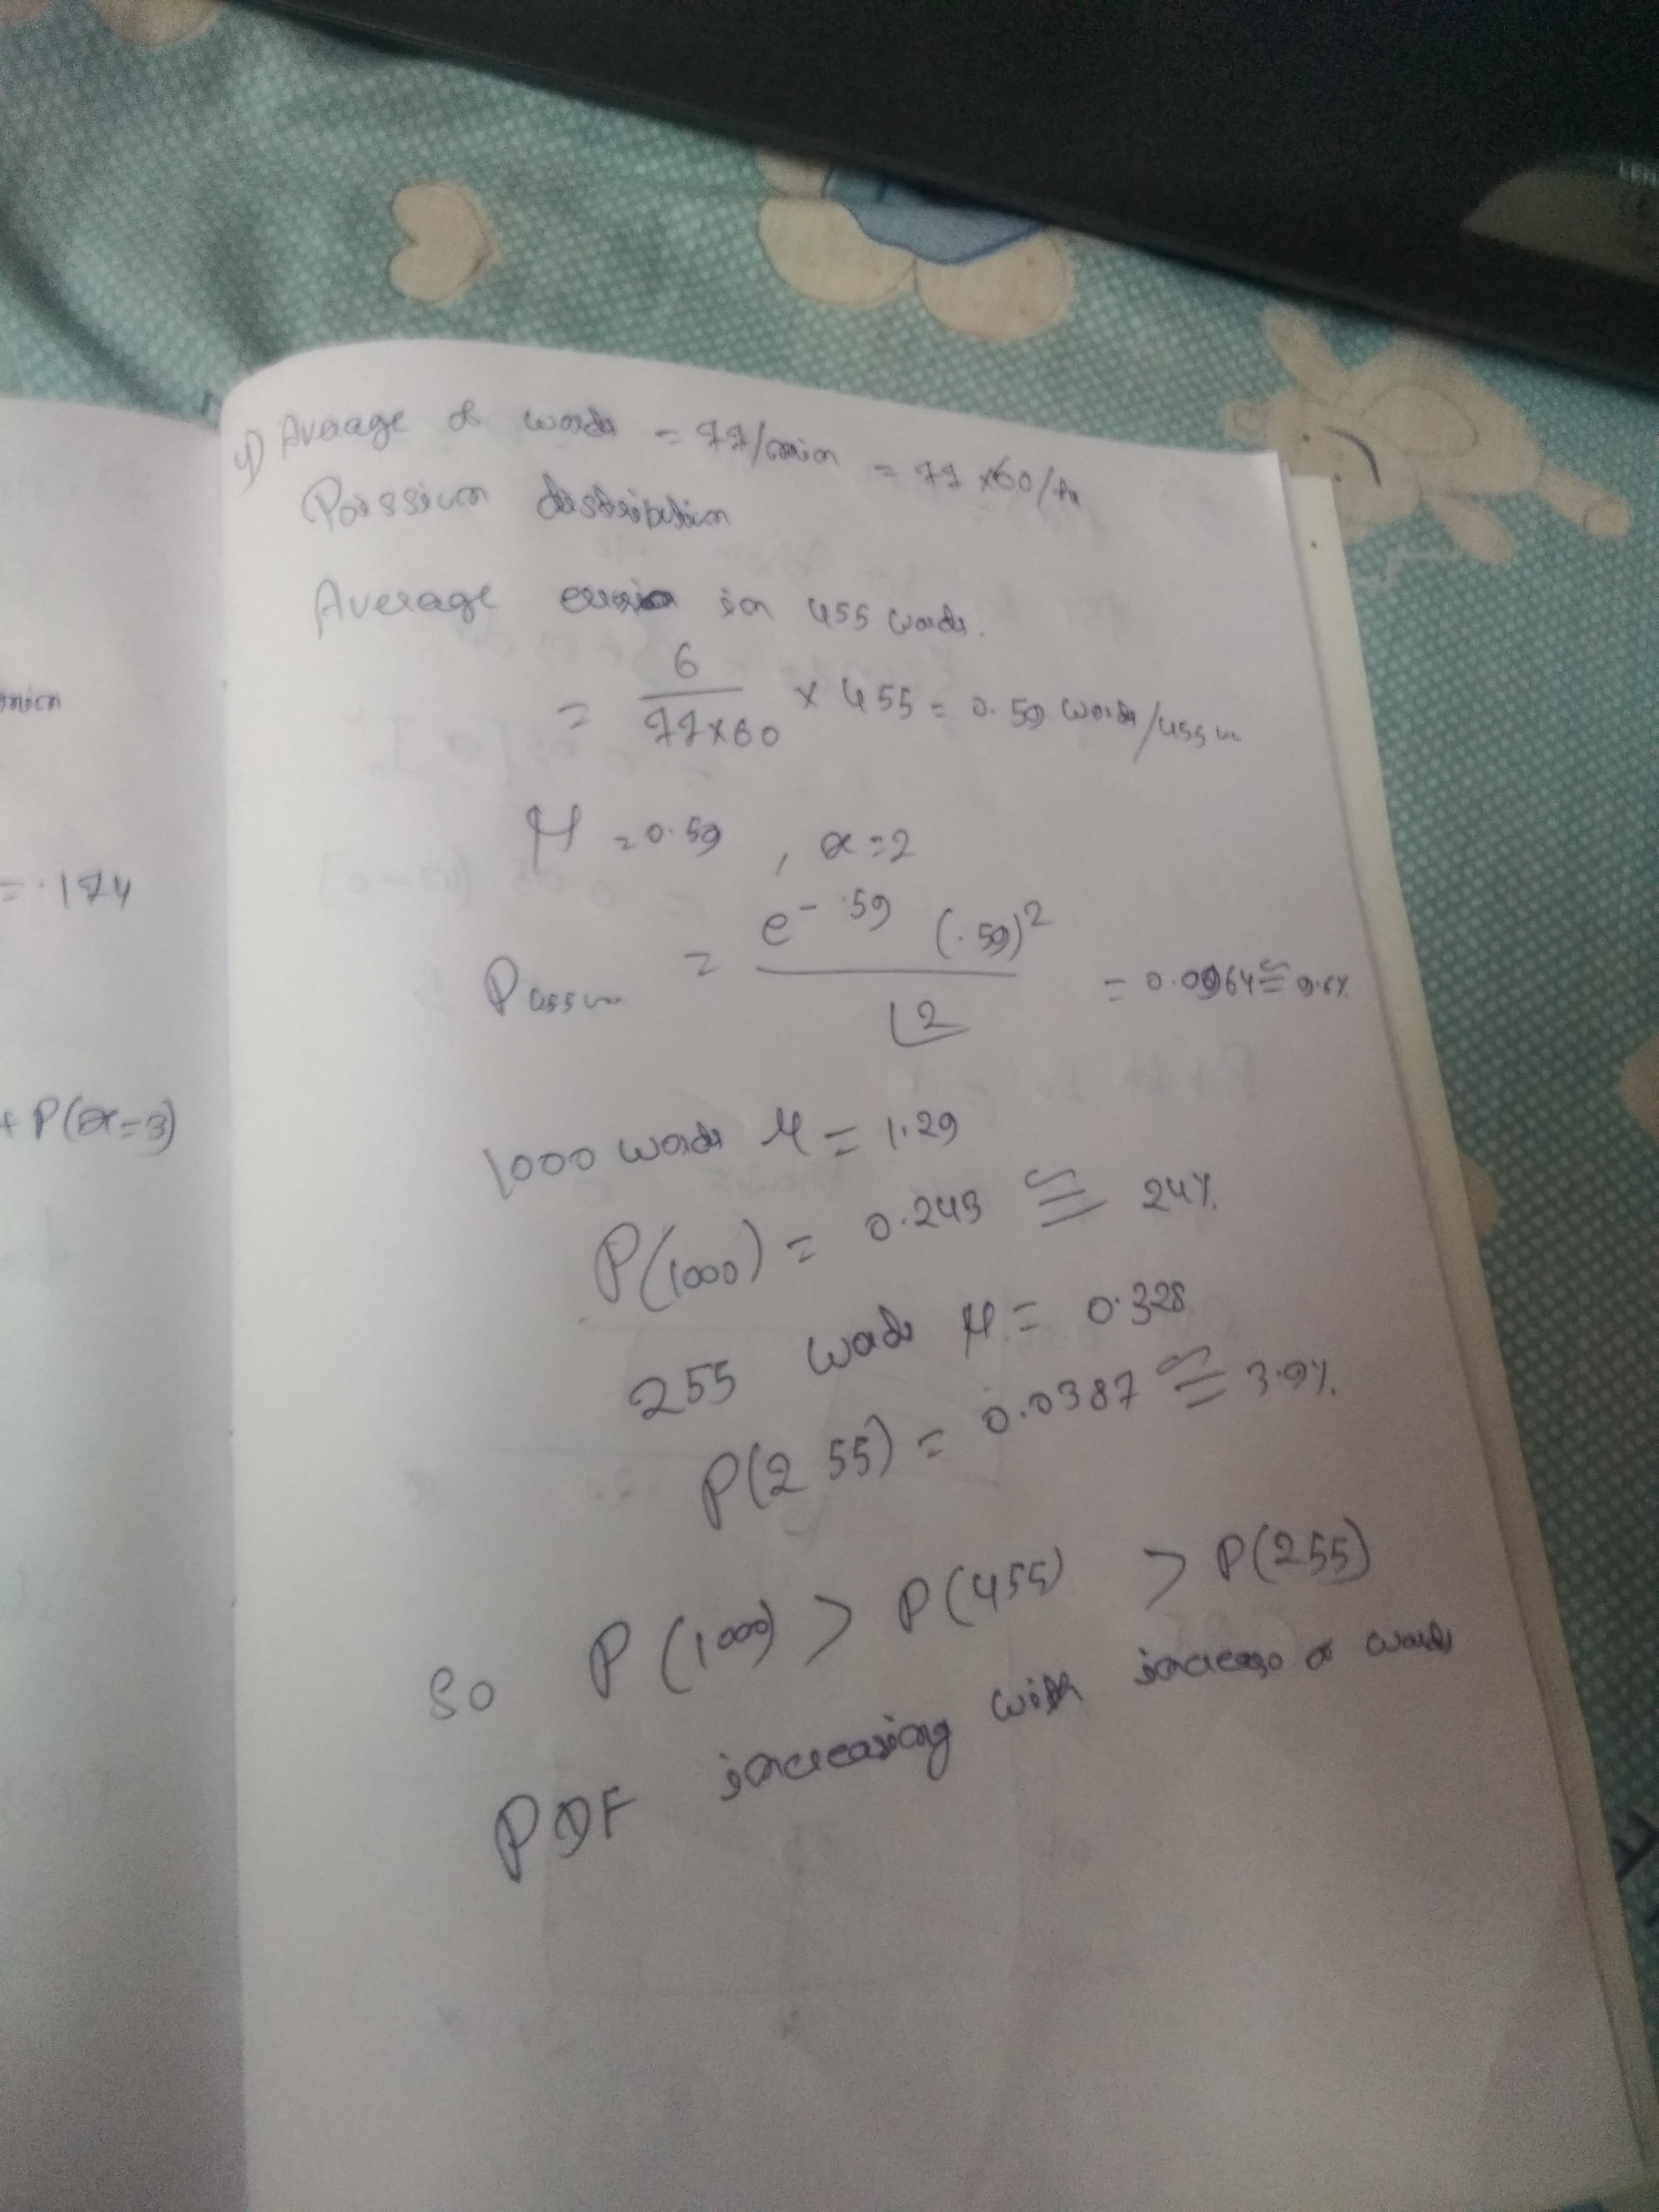 min
= .174
+ P(x=3)
4) Avaage of words = 77/min = 77 x60/hr
Poissium distribution
Average error in 455 words.
= 6 / 77x60 x 455 = 0.59 words/455 w
μ = 0.59 , x=2
P 455 w = e^-.59 (.59)^2 / ⌊2 = 0.0964 ≅ 9.6%
1000 words μ = 1.29
P(1000) = 0.243 ≅ 24%
255 words μ = 0.328
P(255) = 0.0387 ≅ 3.9%
So P(1000) > P(455) > P(255)
PDF increasing with increase of words